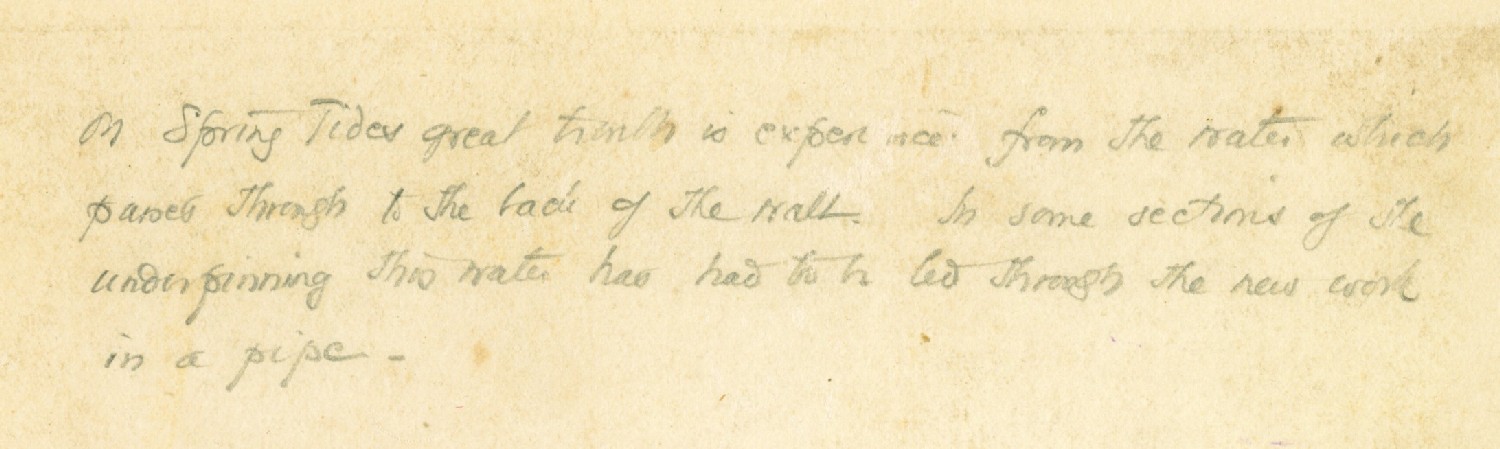 On Spring Tides great trouble is experienced from the water which
passes through to the back of the wall. In some sections of the
underpinning this water has had to be led through the new work
in a pipe -